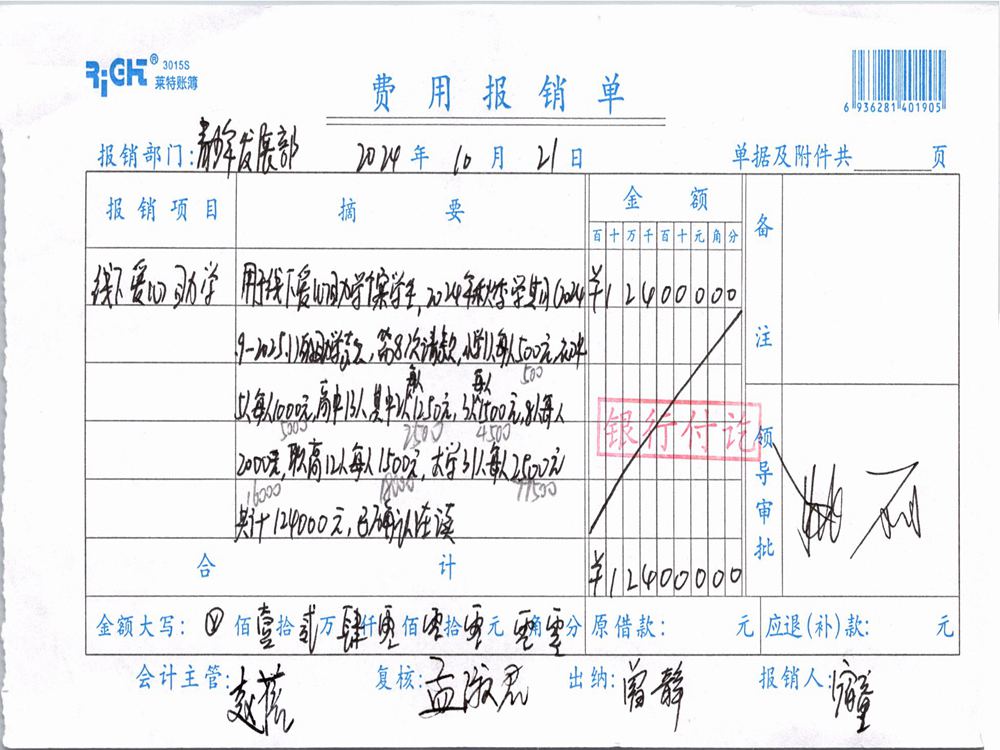 RiGHT® 3015S
莱特账簿
费用报销单
6 936281 401905
报销部门：青少年发展部 2024年10月21日 单据及附件共 页
报销项目 摘要 金额 备注
百十万千百十元角分
线下爱心助学 用于线下爱心助学个案学生，2024年秋季学期（2024 ¥12400000
.9-2025.1）助学款，第8次请款，小学1人每人500元，初中
500
每人 每人
5人每人1000元，高中13人其中2人1250元，3人1500元，8人每人
5000 2500 4500
2000元，职高12人每人1500元，大学31人每人2500元
16000 18000 77500
共计124000元，已确认在读
银行付讫
领导审批
合计 ¥12400000
金额大写：佰壹拾贰万肆仟零佰零拾零元零角零分 原借款： 元 应退(补)款： 元
会计主管： 复核：孟淑君 出纳：曾静 报销人：